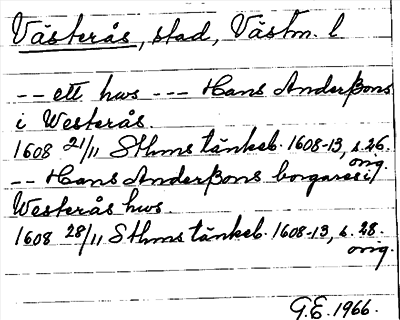 Västerås, stad, Västm. l
-- ett hws --- Hans Anderßons
i Westerås.
1608 21/11 Sthms tänkeb. 1608-13, s. 26.
orig.
-- Hans Anderßons borgares i
Westerås hws.
1608 28/11 Sthms tänkeb. 1608-13, s. 28.
orig.
G.E. 1966.